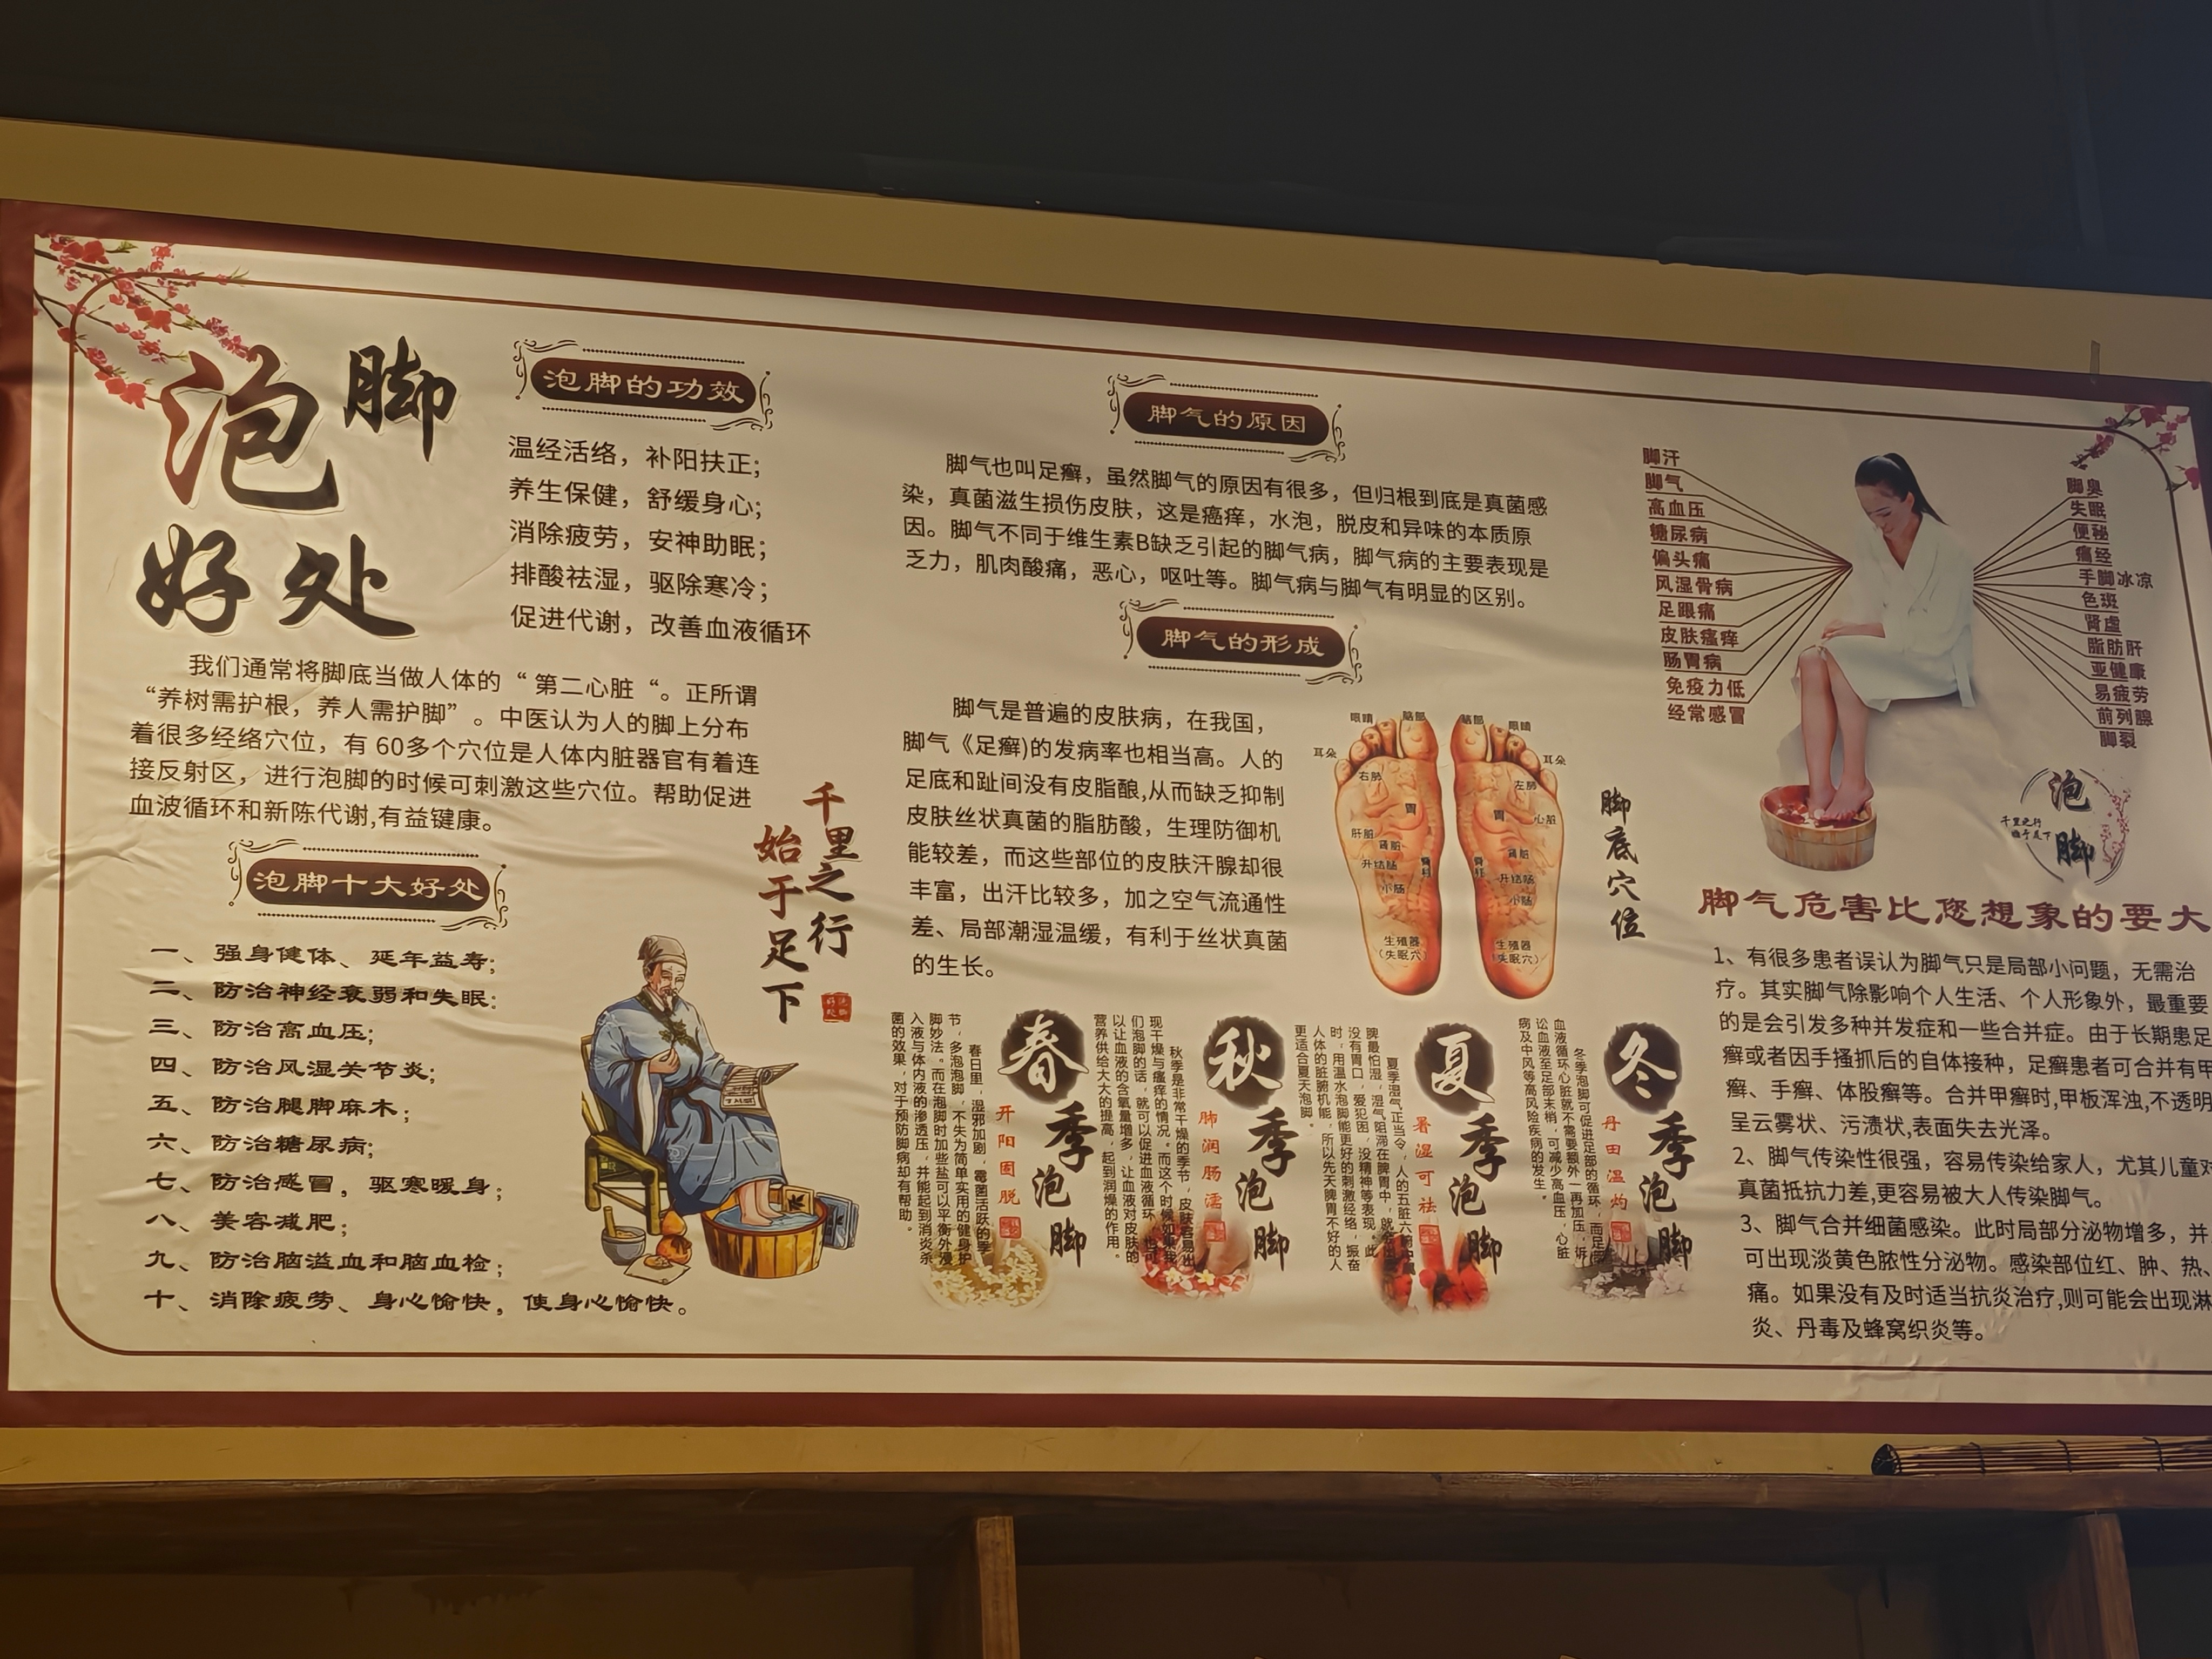 泡脚
好处
泡脚的功效
温经活络，补阳扶正；
养生保健，舒缓身心；
消除疲劳，安神助眠；
排酸祛湿，驱除寒冷；
促进代谢，改善血液循环
我们通常将脚底当做人体的“第二心脏“。正所谓
“养树需护根，养人需护脚”。中医认为人的脚上分布
着很多经络穴位，有 60多个穴位是人体内脏器官有着连
接反射区，进行泡脚的时候可刺激这些穴位。帮助促进
血波循环和新陈代谢,有益键康。
千里之行
始于足下
泡脚十大好处
一、强身健体、延年益寿；
二、防治神经衰弱和失眠；
三、防治高血压；
四、防治风湿关节炎；
五、防治腿脚麻木；
六、防治糖尿病；
七、防治感冒，驱寒暖身；
八、美容减肥；
九、防治脑溢血和脑血检；
十、消除疲劳、身心愉快，使身心愉快。
脚气的原因
脚气也叫足癣，虽然脚气的原因有很多，但归根到底是真菌感
染，真菌滋生损伤皮肤，这是癌痒，水泡，脱皮和异味的本质原
因。脚气不同于维生素B缺乏引起的脚气病，脚气病的主要表现是
乏力，肌肉酸痛，恶心，呕吐等。脚气病与脚气有明显的区别。
脚气的形成
脚气是普遍的皮肤病，在我国，
脚气《足癣)的发病率也相当高。人的
足底和趾间没有皮脂酿,从而缺乏抑制
皮肤丝状真菌的脂肪酸，生理防御机
能较差，而这些部位的皮肤汗腺却很
丰富，出汗比较多，加之空气流通性
差、局部潮湿温缓，有利于丝状真菌
的生长。
眼睛
脑部
脑部
眼睛
耳朵
耳朵
右肺
左肺
胃
胃
心脏
肝脏
肾脏
肾脏
升结肠
升结肠
小肠
小肠
脊柱
脊柱
生殖器
（失眠穴）
生殖器
（失眠穴）
脚底穴位
春季泡脚
开阳固脱
春日里，湿邪加剧，霉菌活跃的季
节，多泡泡脚，不失为简单实用的健身护
脚妙法。而在泡脚时加些盐可以平衡外浸
入液与体内液的渗透压，并能起到消炎杀
菌的效果，对于预防脚病却有帮助。
秋季泡脚
肺润肠濡
秋季是非常干燥的季节，皮肤容易出
现干燥与瘙痒的情况。而这个时候如果我
们泡脚的话，就可以促进血液循环，也可
以让血液的含氧量增多，让血液对皮肤的
营养供给大大的提高，起到润燥的作用。
夏季泡脚
暑湿可祛
夏季湿气正当令，人的五脏六腑中
脾最怕湿，湿气阻滞在脾胃中，就会出
没有胃口，爱犯困，没精神等表现。此
时，用温水泡脚能更好的刺激经络，振奋
人体的脏腑机能，所以先天脾胃不好的人
更适合夏天泡脚。
冬季泡脚
丹田温灼
冬季泡脚可促进足部的循环，而足部
血液循环心脏就不需要额外一再加压，
讼血液至足部末梢，可减少高血压，心脏
病及中风等高风险疾病的发生。
脚汗
脚气
高血压
糖尿病
偏头痛
风湿骨病
足跟痛
皮肤瘙痒
肠胃病
免疫力低
经常感冒
脚臭
失眠
便秘
痛经
手脚冰凉
色斑
肾虚
脂肪肝
亚健康
易疲劳
前列腺
脚裂
泡脚
千里之行
始于足下
脚气危害比您想象的要大
1、有很多患者误认为脚气只是局部小问题，无需治
疗。其实脚气除影响个人生活、个人形象外，最重要
的是会引发多种并发症和一些合并症。由于长期患足
癣或者因手搔抓后的自体接种，足癣患者可合并有甲
癣、手癣、体股癣等。合并甲癣时,甲板浑浊,不透明
呈云雾状、污渍状,表面失去光泽。
2、脚气传染性很强，容易传染给家人，尤其儿童对
真菌抵抗力差,更容易被大人传染脚气。
3、脚气合并细菌感染。此时局部分泌物增多，并
可出现淡黄色脓性分泌物。感染部位红、肿、热、
痛。如果没有及时适当抗炎治疗,则可能会出现淋
炎、丹毒及蜂窝织炎等。